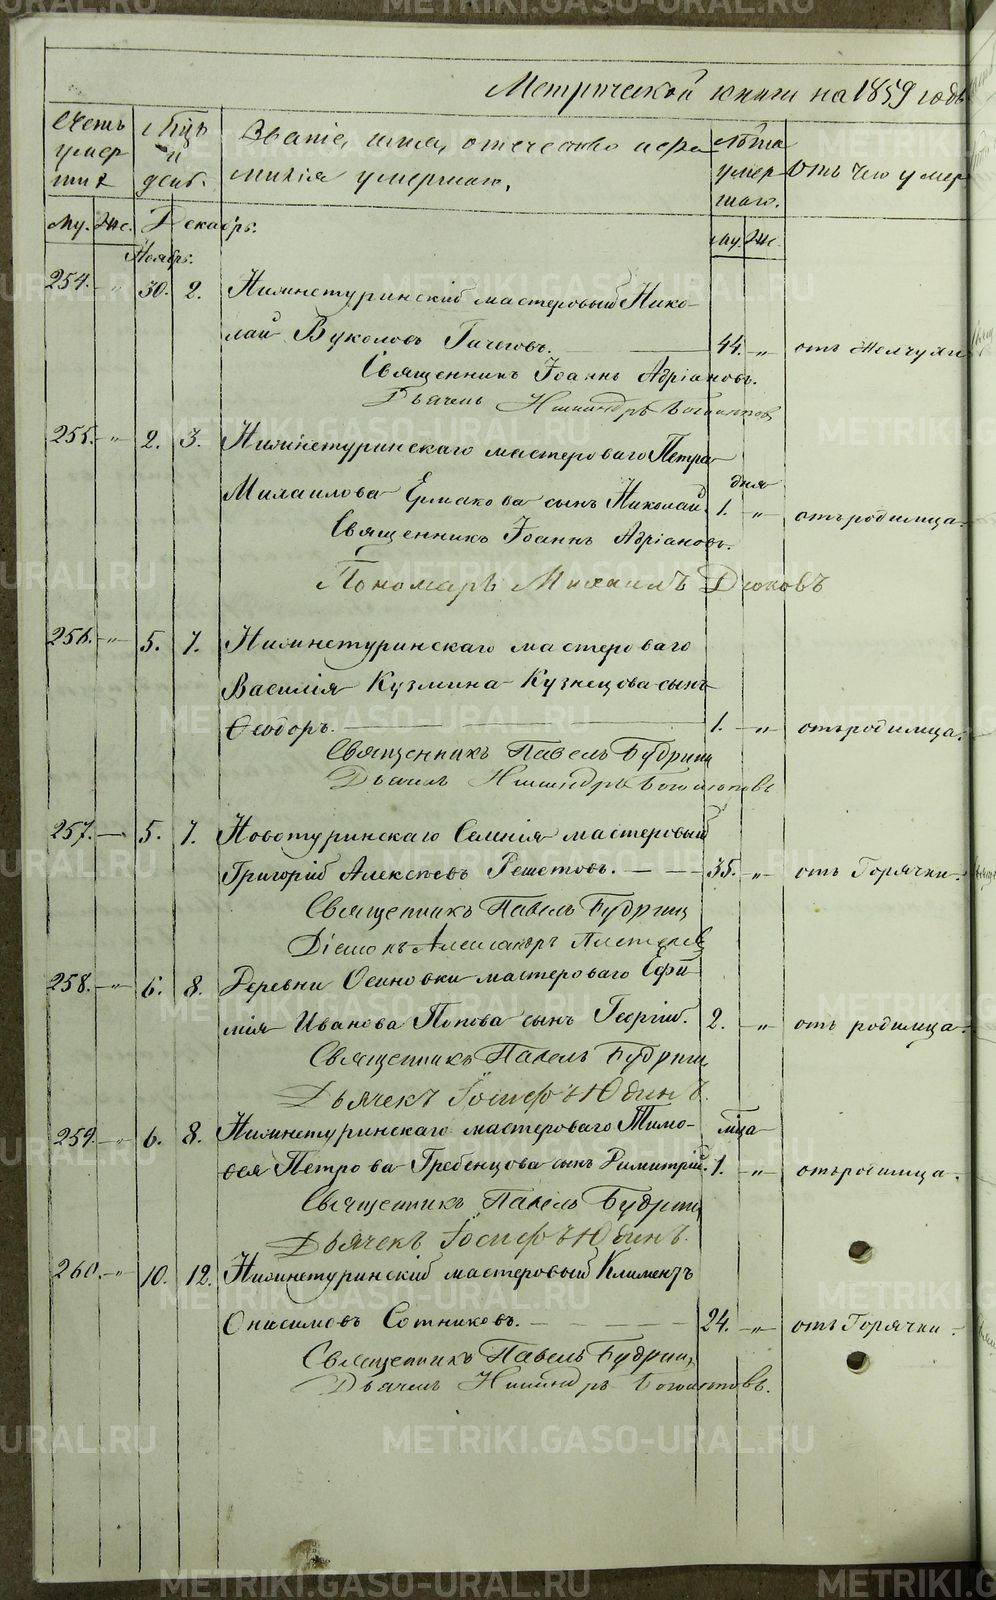 Метрической книги на 1859 годъ
Счетъ умер ших
Мцъ и день.
Званіе, имя, отечество и фа
милія умершаго.
Лѣта умер шаго.
Отъ чего умер
Му. Же. Декабрь.
Му. Же.
Ноябрь.
254. -"- 30. 2. Нижнетуринскій мастеровый Нико-
лай Вуколовъ Гичеговъ. 44. -"- отъ желчуги
Священникъ Іоаннъ Адріановъ.
Дьячекъ
255. -"- 2. 3. Нижнетуринскаго мастероваго Петра
дня
Михаилова Ермакова сынъ Николай. 1. -"- отъ родимца.
Священникъ Іоаннъ Адріановъ.
Пономарь Михаилъ Дюковъ
256. -"- 5. 7. Нижнетуринскаго мастероваго
Василія Кузмина Кузнецова сынъ
Ѳеодоръ. 1. -"- отъ родимца.
Священникъ Павелъ Будрин
Дьячекъ
257. - 5. 7. Новотуринскаго Селенія мастеровый
Григорій Алексѣевъ Решетовъ. 35. -"- отъ Горячки.
Священникъ Павелъ Будрин
Діаконъ Александръ
258. -"- 6. 8. Деревни Осиновки мастероваго Ефи
мія Иванова Попова сынъ Георгій. 2. -"- отъ родимца.
Священникъ Павелъ Будрин
Дьячекъ Іосифъ Юдинъ.
259. -"- 6. 8. Нижнетуринскаго мастероваго Тимо-
мца
ѳея Петрова Гребенцова сынъ Димитрій. 1. -"- отъ родимца.
Священникъ Павелъ Будрин
Дьячекъ Іосифъ Юдинъ.
260. -"- 10. 12. Нижнетуринскій мастеровый Климентъ
Онисимовъ Сотниковъ. 24. -"- отъ Горячки.
Священникъ Павелъ Будрин
Дьячекъ
METRIKI.GASO-URAL.RU